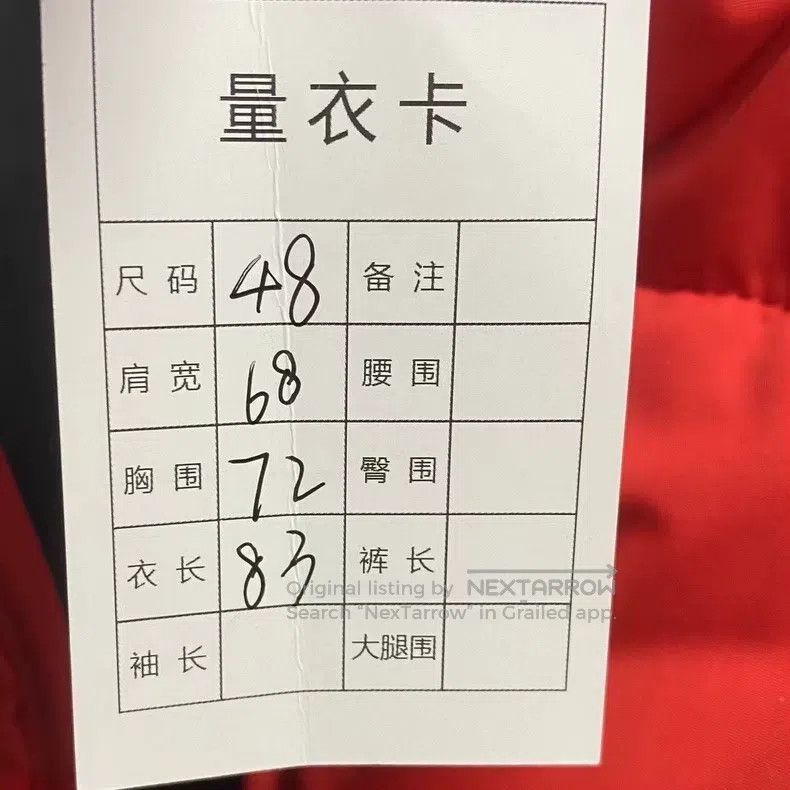 量衣卡
尺码 48 备注
肩宽 68 腰围
胸围 72 臀围
衣长 83 裤长
Original listing by NEXTARROW
Search "NexTarrow" in Grailed app.
袖长 大腿围